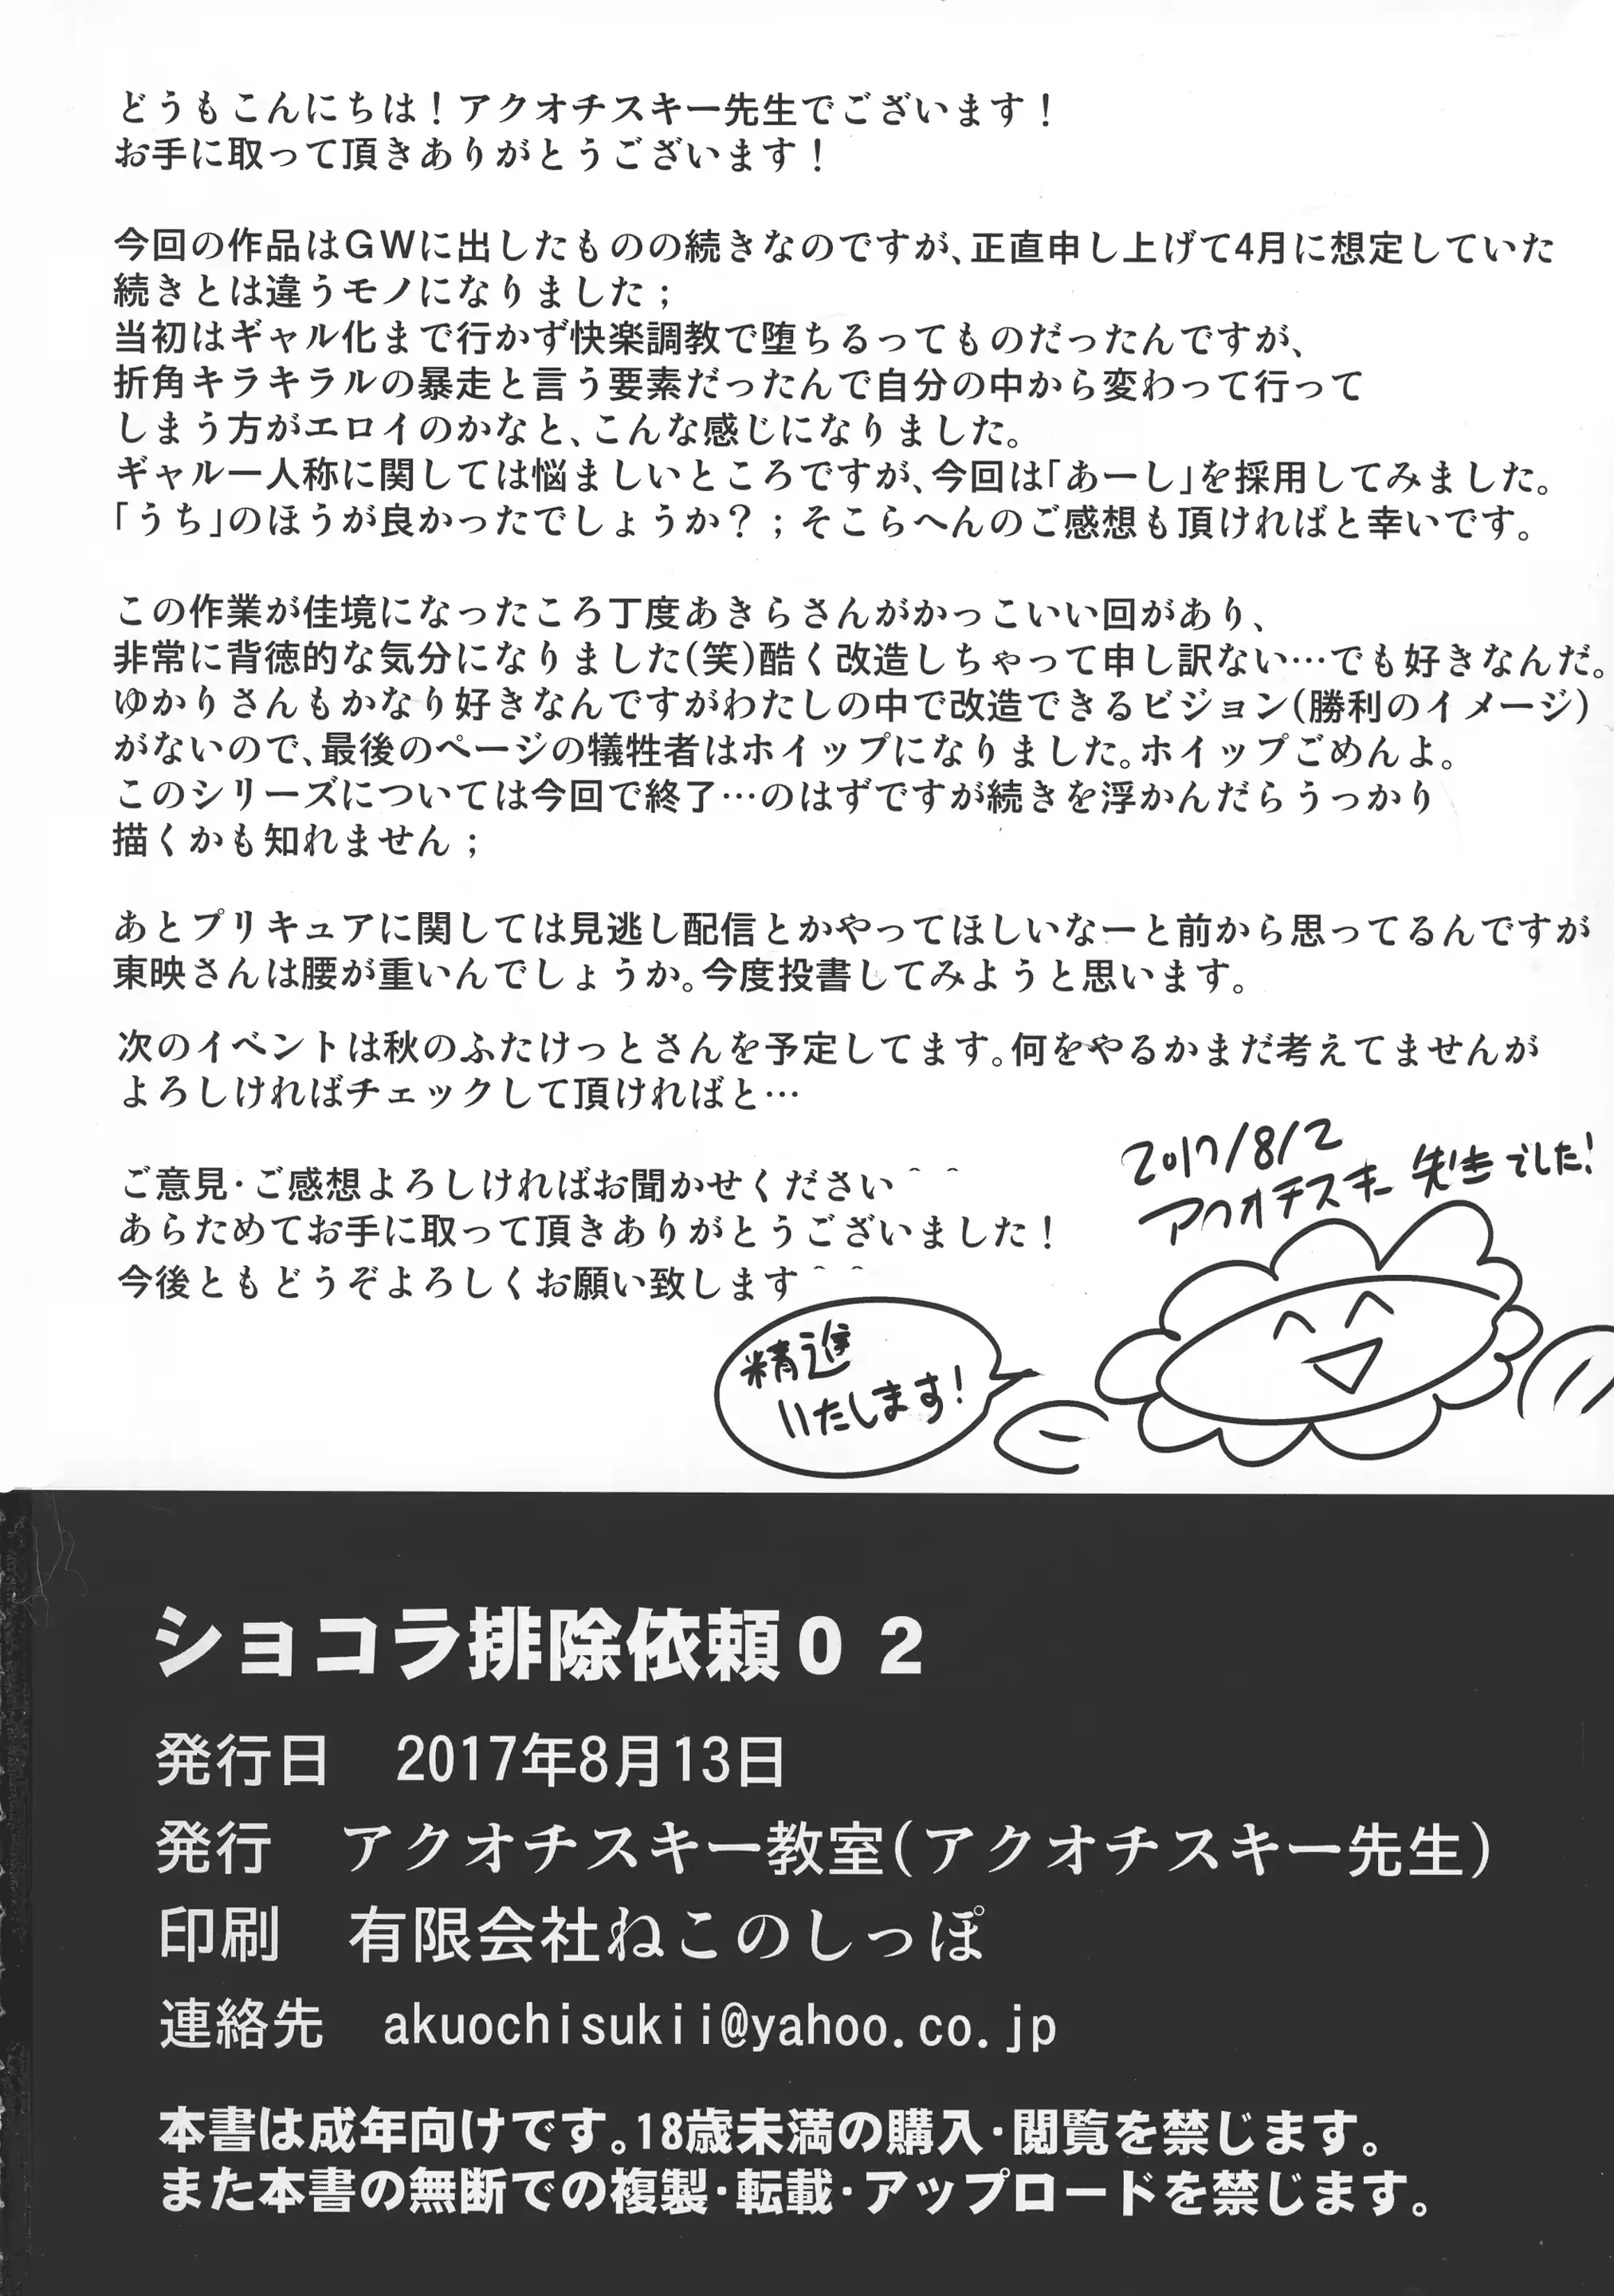 どうもこんにちは！アクオチスキー先生でございます！
お手に取って頂きありがとうございます！
今回の作品はＧＷに出したものの続きなのですが、正直申し上げて4月に想定していた
続きとは違うモノになりました；
当初はギャル化まで行かず快楽調教で堕ちるってものだったんですが、
折角キラキラルの暴走と言う要素だったんで自分の中から変わって行って
しまう方がエロイのかなと、こんな感じになりました。
ギャル一人称に関しては悩ましいところですが、今回は「あーし」を採用してみました。
「うち」のほうが良かったでしょうか？；そこらへんのご感想も頂ければと幸いです。
この作業が佳境になったころ丁度あきらさんがかっこいい回があり、
非常に背徳的な気分になりました(笑)酷く改造しちゃって申し訳ない…でも好きなんだ。
ゆかりさんもかなり好きなんですがわたしの中で改造できるビジョン(勝利のイメージ)
がないので、最後のページの犠牲者はホイップになりました。ホイップごめんよ。
このシリーズについては今回で終了…のはずですが続きを浮かんだらうっかり
描くかも知れません；
あとプリキュアに関しては見逃し配信とかやってほしいなーと前から思ってるんですが
東映さんは腰が重いんでしょうか。今度投書してみようと思います。
次のイベントは秋のふたけっとさんを予定してます。何をやるかまだ考えてませんが
よろしければチェックして頂ければと…
ご意見・ご感想よろしければお聞かせください＾＾
あらためてお手に取って頂きありがとうございました！
今後ともどうぞよろしくお願い致します＾＾
2017/8/2
アクオチスキー先生でした！
精進
いたします！
ショコラ排除依頼０２
発行日　2017年8月13日
発行　アクオチスキー教室(アクオチスキー先生)
印刷　有限会社ねこのしっぽ
連絡先　akuochisukii@yahoo.co.jp
本書は成年向けです。18歳未満の購入・閲覧を禁じます。
また本書の無断での複製・転載・アップロードを禁じます。